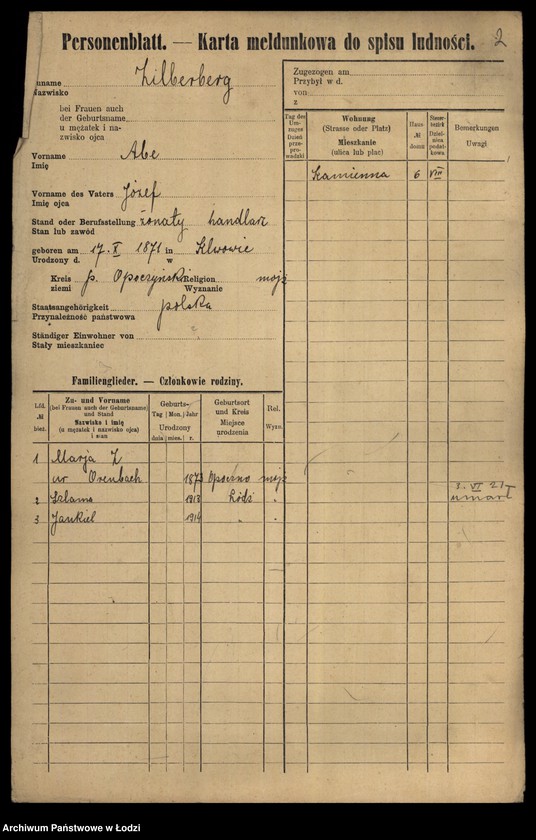 Personenblatt. — Karta meldunkowa do spisu ludności. 2
Zuname Zilberberg
Nazwisko
bei Frauen auch
der Geburtsname
u mężatek i na-
zwisko ojca
Vorname Abe
Imię
Vorname des Vaters Józef
Imię ojca
Stand oder Berufsstellung żonaty handlarz
Stan lub zawód
geboren am 17. X 1871 in Klwowie
Urodzony d. w
Kreis p. Opoczyński Religion mojż
ziemi Wyznanie
Staatsangehörigkeit polska
Przynależność państwowa
Ständiger Einwohner von
Stały mieszkaniec
Zugezogen am
Przybył w d.
von
z
Tag des Um-zuges Dzień prze-prowadzki
Wohnung (Strasse oder Platz) Mieszkanie (ulica lub plac)
Haus- № domu
Steuer-bezirk Dziel-nica podat-kowa
Bemerkungen Uwagi
Kamienna 6 VIII
Familienglieder. — Członkowie rodziny.
Lfd. № bież.
Zu- und Vorname (bei Frauen auch der Geburtsname) und Stand Nazwisko i imię (u mężatek i nazwisko ojca) i stan
Geburts- Tag Mon. Jahr Urodzony dnia mies. r.
Geburtsort und Kreis Miejsce urodzenia
Rel. Wyzn.
1 Marja Z
ur Orenbach 1873 Opoczno mojż
2 Szlama 1913 Łódź "
3. VI 21 r umarł
3 Jankiel 1914 " "
Archiwum Państwowe w Łodzi